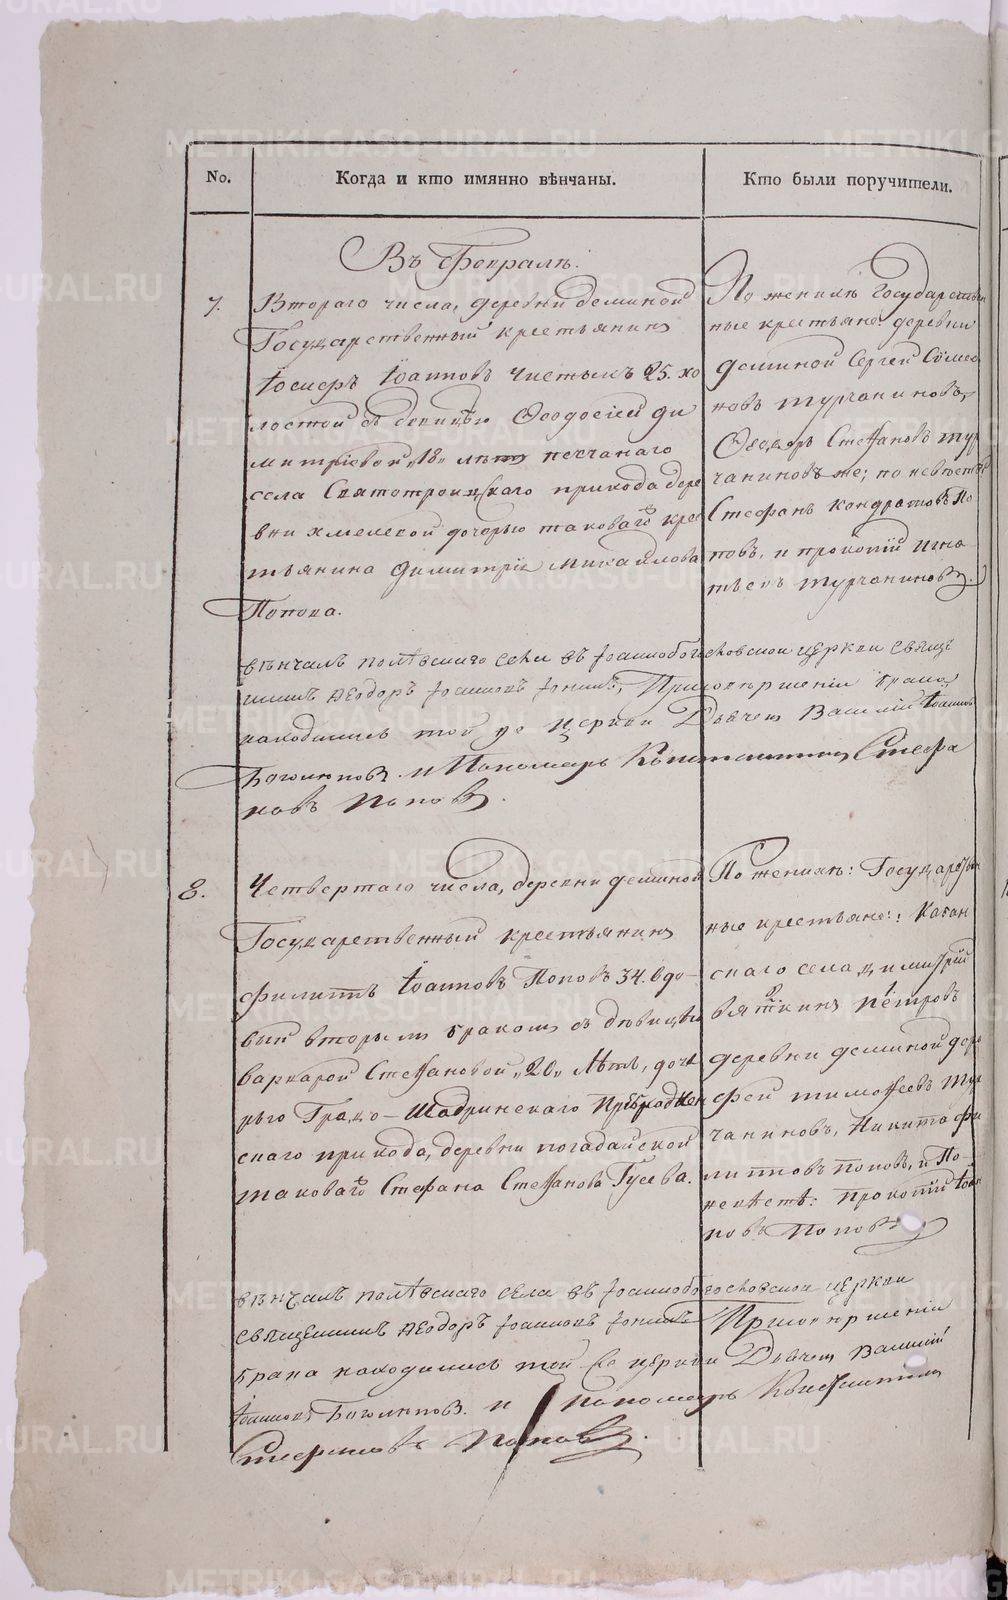 No.
Когда и кто имянно вѣнчаны.
Кто были поручители.
Въ Февралѣ.
7.
Втораго числа, деревни деминой
Государственный крестьянинъ
Іосифъ Іоанновъ Чистыхъ 25. хо
лостой съ девицею Ѳеодосіей ди
митріевой „18„ лѣтъ песчанаго
села Святотроицкаго прихода дере
вни хмелевой дочерью таковаго крес
тьянина Димитрія Михайлова
Попова.
По женихѣ Государствен
ные крестьяне: деревни
деминой Сергей Сѵмео
новъ турчаниновъ,
Ѳеодоръ Стефановъ тур
чаниновъ же; по невѣстѣ
Стефанъ Кондратовъ По
повъ, и прокопій Игна
тьевъ турчаниновъ.
вѣнчалъ полѣвскаго села въ Іоаннобогословской церкви свящ
Ѳеодоръ Іоанновъ При совершеніи брака
находились той же церкви Дьячек Василій Іоаннов
Боголюпов. и Пономарь Константин Стефа
новъ Поповъ.
8.
Четвертаго числа, деревни деминой
Государственный крестьянинъ
филиппъ Іоанновъ Поповъ 34. вдо
вый вторымъ бракомъ съ дѣвицею
варварой Стефановой „20„ лѣтъ, доче
рью Градо-Шадринскаго Преображен
скаго прихода, деревни погадайской
таковаго Стефана Стефанова Гусева.
По женихѣ: Государствен
ные крестьяне: Катай
скаго села димитрій
вяткинъ Петровъ
деревни деминой дор
фей тимофеевъ Тур
чаниновъ, Никита фи
липповъ поповъ, и По
невѣстѣ: Прокопій Іоан
новъ Поповъ
вѣнчалъ полѣвскаго села въ Іоаннобогословской церкви
священникъ Ѳеодоръ Іоанновъ При совершеніи
брака находились той же церкви Дьячек Василій
Іоаннов Боголюпов. и пономарь Константин
Стефановъ Поповъ.
METRIKI.GASO-URAL.RU